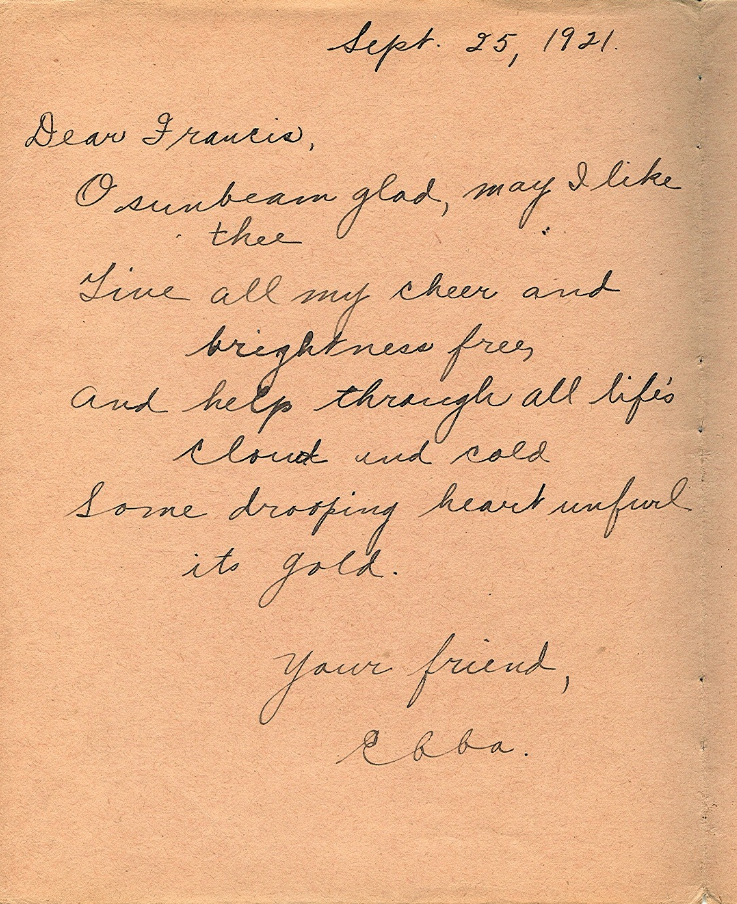 Sept. 25, 1921.
Dear Francis,
O sunbeam glad, may I like
thee
Give all my cheer and
brightness free,
And help through all life's
cloud and cold
Some drooping heart unfurl
its gold.
Your friend,
Ebba.